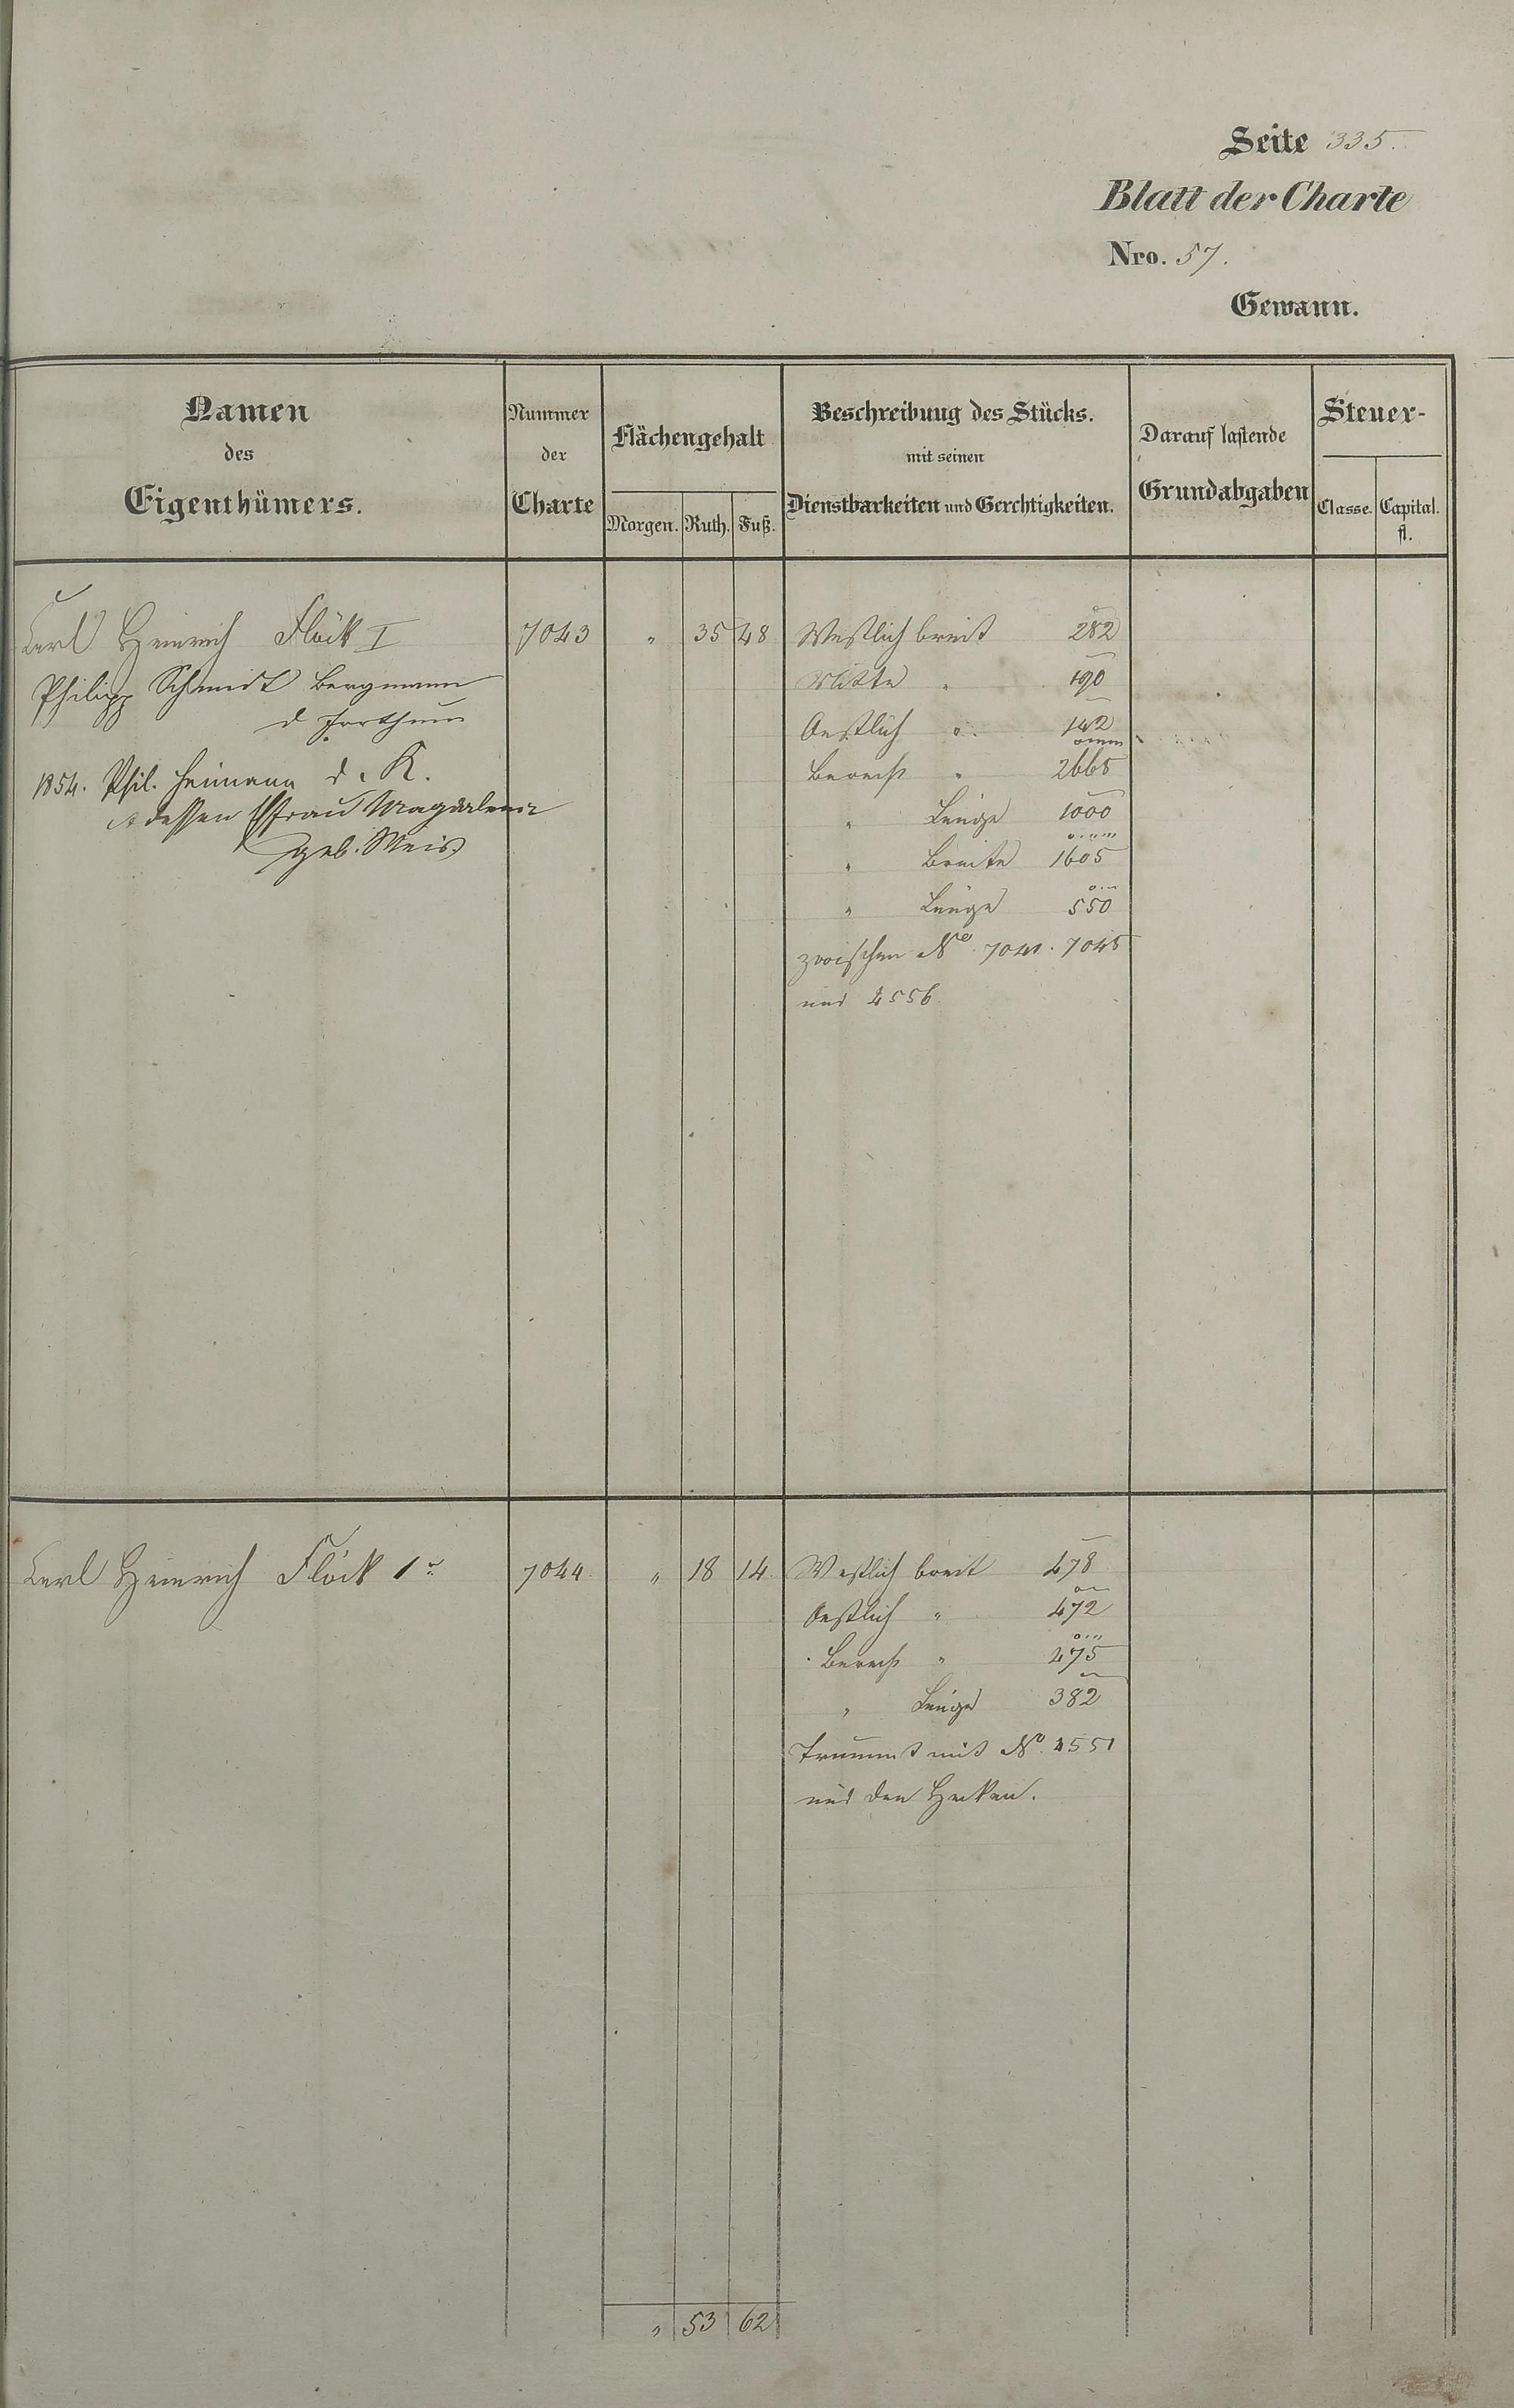 Seite 335.
Blatt der Charte
Nro. 57.
Gewann.
Namen des Eigenthümers.
Nummer der Charte
Flächengehalt
Morgen. Ruth. Fuß.
Beschreibung des Stücks.
mit seinen
Dienstbarkeiten und Gerechtigkeiten.
Darauf lastende
Grundabgaben
Steuer-
Classe. Capital.
fl.
Carl Heinrich Flöck I 7043 " 35 48 Westlich breit 282
Philipp Schmidt Bergmann Mitte " 190
Oestlich " 142
1854. Phil. Heimann d. K. Berech " 2665
dessen Ehfrau Magdalena " Länge 1000
geb. Weis " Breite 1605
" Länge 550
zwischen No. 7041. 7045
und 4556
Carl Heinrich Flöck 1r 7044 " 18 14 Westlich breit 478
Oestlich " 472
Berech " 475
" Länge 382
No. 4551
und den Hecken.
" 53 62